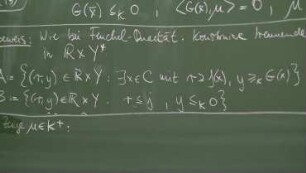 G(x̄) ≤_K 0 , ⟨G(x̄),μ⟩ = 0 , μ
Wie bei Fenchel-Dualität. Konstruiere trennende
in ℝ×Y*
A = {(r,y) ∈ ℝ×Y : ∃x∈C mit r≥f(x), y ≥_K G(x)}
B = {(r,y)∈ℝ×Y : r≤j , y ≤_K 0}
Zeige μ∈K⁺: